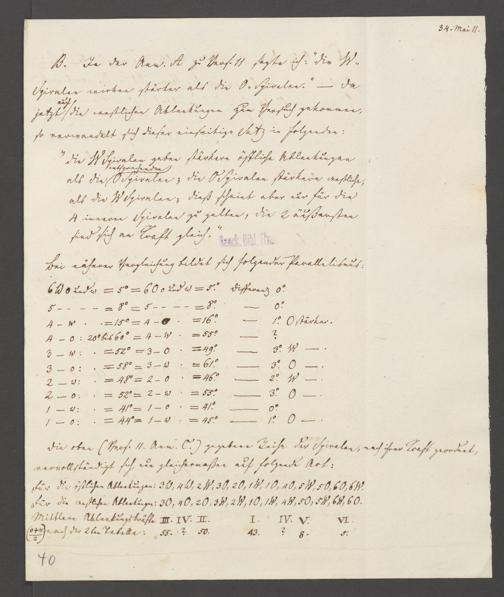 34. Mai 11.
B. In der Anm. A zu Vers. 11 sagte ich: "die W-
Spiralen wirken stärker als die O-Spiralen." — Da
jetzt auch die westlichen Ablenkungen zum Versuch gekommen,
so verwandelt sich dieser einseitige Satz in folgenden:
"die W Spiralen geben stärkere östliche Ablenkungen
als die O Spiralen; die O Spiralen stärkere westliche,
als die W Spiralen; dieß scheint aber nur für die
4 inneren Spiralen zu gelten, die 2 äußersten
sind sich an Kraft gleich."
Bei näherer Vergleichung bildet sich folgender Parallelismus.
6 W o und w = 5° = 6 O o und w = 5°. Differenz 0°.
5 - - - - = 8° = 5 - - - - = 8°. — 0°.
4 - w . = 15° = 4 - o . = 16° — 1°. O stärker.
4 - o : 20° bis 60° = 4 - w . = 55° — ?
3 - w : = 52° = 3 - o . = 49° — 3°. W —.
3 - o : = 58° = 3 - w . = 61° — 3°. O —.
2 - w : = 48° = 2 - o . = 46° — 2°. W —.
2 - o : = 52° = 2 - w . = 55° — 3°. O —.
1 - w : = 41° = 1 - o . = 41° — 0°.
1 - o : = 44° = 1 - w . = 45° — 1°. O —.
Die oben (Vers. 11. Anm. C.) gegebene Reihe der Spiralen, nach ihrer Kraft geordnet,
vervollständigt sich nun gleichermaßen auf folgende Art:
Für die östlichen Ablenkungen: 3O, 4W, 2W, 3O, 2O, 1W, 1O, 4O, 5W, 5O, 6O, 6W.
Für die westlichen Ablenkungen: 3O, 4O, 2O, 3W, 2W, 1O, 1W, 4W, 5O, 5W, 6W, 6O.
Mittlere Ablenkungskräfte III. IV. II. I. IV. V. VI.
nach der 2ten Tabelle: 55. ? 50. 43. ? 8. 5.
40